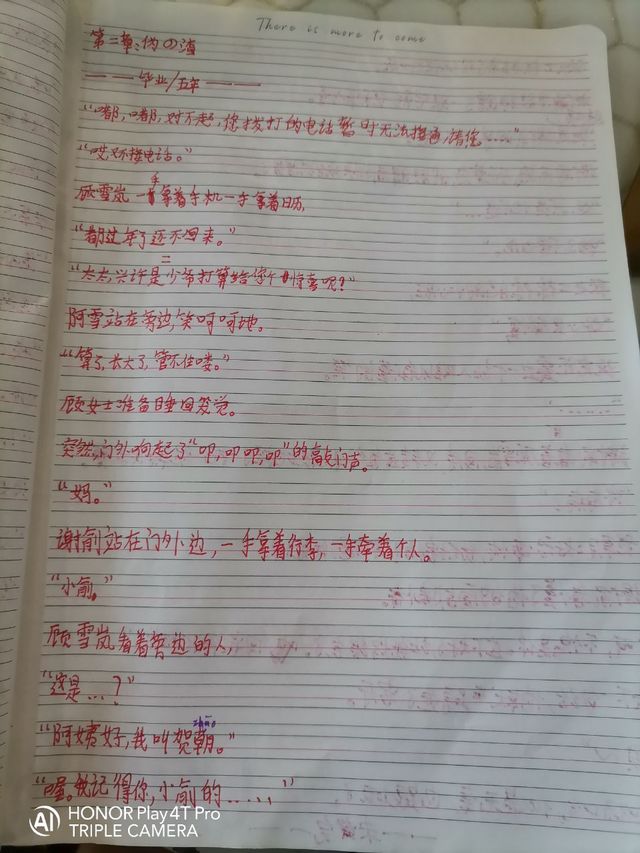 There is more to come
第二章:伪の渣
———毕业/五年———
"嘟,嘟,对不起,您拨打的电话暂时无法接通,请您……"
"哎,又不接电话。"
顾雪岚一手拿着手机一手拿着日历,
"都过年了还不回来。"
"太太,兴许是二少爷打算给你个惊喜呢?"
阿雪站在旁边,笑呵呵地。
"算了,长大了,管不住喽。"
顾女士准备睡回笼觉。
突然,门外响起了"叩,叩叩,叩"的敲门声。
"妈。"
谢俞站在门外边,一手拿着行李,一手牵着个人。
"小俞。"
顾雪岚看着旁边的人,
"这是…?"
"阿姨好,我叫贺朝。"
zhāo
"喔。我记得你,小俞的……"
AI HONOR Play4T Pro
TRIPLE CAMERA